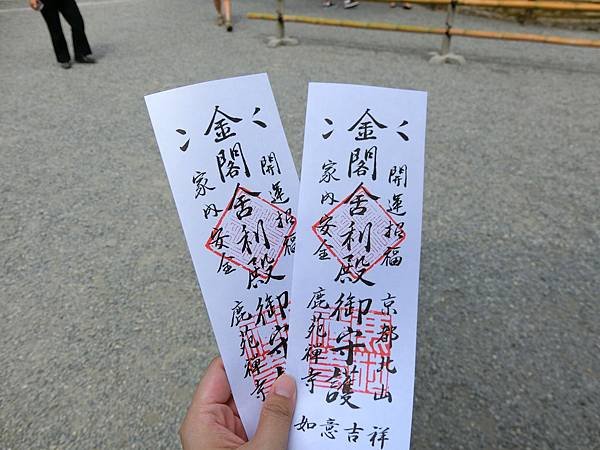 金閣舍利殿御守
開運招福
家內安全
鹿苑禅寺
金閣舍利殿御守護
開運招福
家內安全
京都北山
鹿苑禅寺
如意吉祥